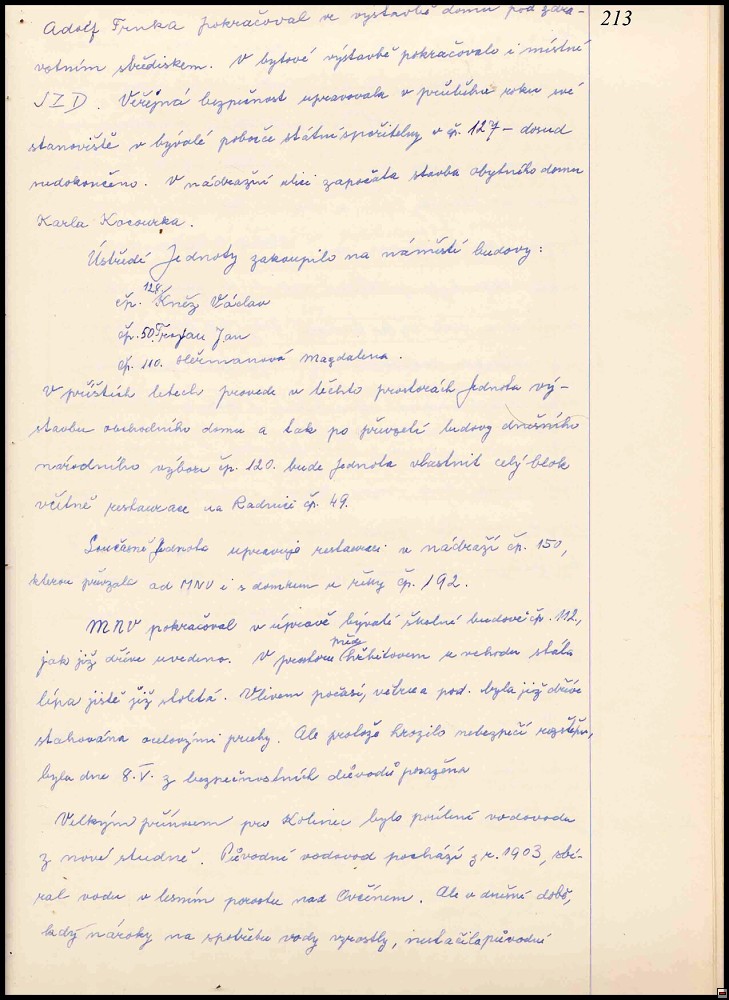 213
Adolf Frnka pokračoval ve výstavbě domu pod zdra-
votním střediskem. V bytové výstavbě pokračovalo i místní
JZD. Veřejná bezpečnost upravovala v průběhu roku své
stanoviště v bývalé pobočce státní spořitelny v čp. 127 – dosud
nedokončeno. V nádražní ulici započata stavba obytného domu
Karla Kocourka.
Ústředí Jednoty zakoupilo na náměstí budovy:
čp. 128. Kněz Václav
čp. 50. Trojan Jan
čp. 110. Heřmanová Magdalena.
V příštích letech provede v těchto prostorách Jednota vý-
stavbu obchodního domu a tak po převzetí budovy dnešního
národního výboru čp. 120. bude Jednota vlastnit celý blok
včetně restaurace na Radnici čp. 49.
Současně Jednota upravuje restauraci u nádraží čp. 150,
kterou převzala od MNV i s domkem u řeky čp. 192.
MNV pokračoval v úpravě bývalé školní budově čp. 112.,
jak již dříve uvedeno. V prostoru před hřbitovem u vchodu stála
lípa jistě již stoletá. Vlivem počasí, větru a pod. byla již dříve
stahována ocelovými pruhy. Ale protože hrozilo nebezpečí rozštěpu,
byla dne 8.V. z bezpečnostních důvodů poražena
Velkým přínosem pro Kolinec bylo posílení vodovodu
z nové studně. Původní vodovod pochází z r. 1903, sbí-
ral vodu v lesním porostu nad Ovčínem. Ale v dnešní době,
kdy nároky na spotřebu vody vzrostly, nestačila původní